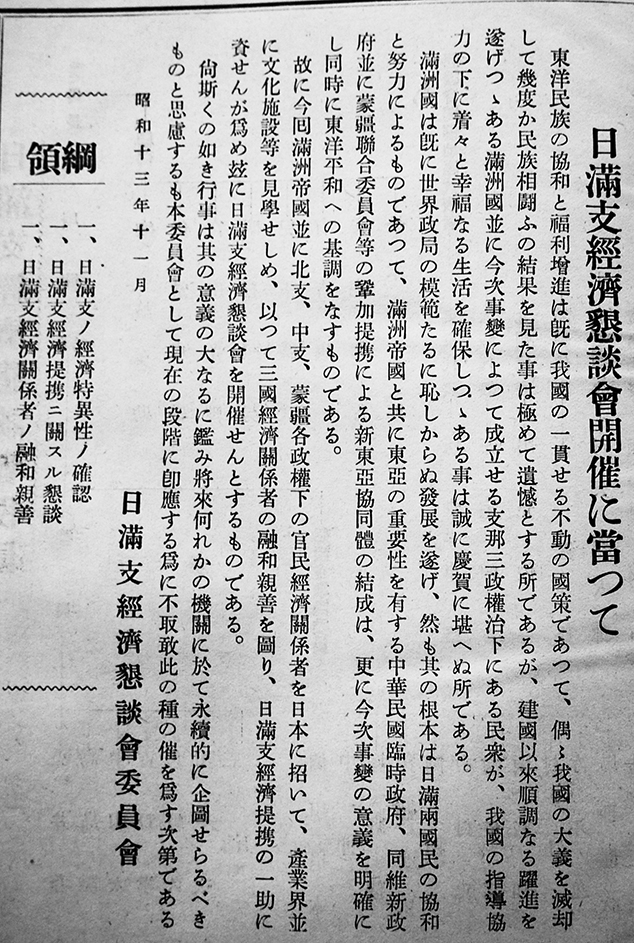 日滿支經濟懇談會開催に當つて
東洋民族の協和と福利增進は旣に我國の一貫せる不動の國策であつて、偶〻我國の大義を滅却
して幾度か民族相鬪ふの結果を見た事は極めて遺憾とする所であるが、建國以來順調なる躍進を
遂げつゝある滿洲國並に今次事變によつて成立せる支那三政權治下にある民衆が、我國の指導協
力の下に着々と幸福なる生活を確保しつゝある事は誠に慶賀に堪へぬ所である。
滿洲國は旣に世界政局の模範たるに恥しからぬ發展を遂げ、然も其の根本は日滿兩國民の協和
と努力によるものであつて、滿洲帝國と共に東亞の重要性を有する中華民國臨時政府、同維新政
府並に蒙疆聯合委員會等の鞏加提携による新東亞協同體の結成は、更に今次事變の意義を明確に
し同時に東洋平和への基調をなすものである。
故に今囘滿洲帝國並に北支、中支、蒙疆各政權下の官民經濟關係者を日本に招いて、產業界並
に文化施設等を見學せしめ、以つて三國經濟關係者の融和親善を圖り、日滿支經濟提携の一助に
資せんが爲め玆に日滿支經濟懇談會を開催せんとするものである。
尙斯くの如き行事は其の意義の大なるに鑑み將來何れかの機關に於て永續的に企圖せらるべき
ものと思慮するも本委員會として現在の段階に卽應する爲に不取敢此の種の催を爲す次第である
昭和十三年十一月
日滿支經濟懇談會委員會
綱領
一、日滿支ノ經濟特異性ノ確認
一、日滿支經濟提携ニ關スル懇談
一、日滿支經濟關係者ノ融和親善